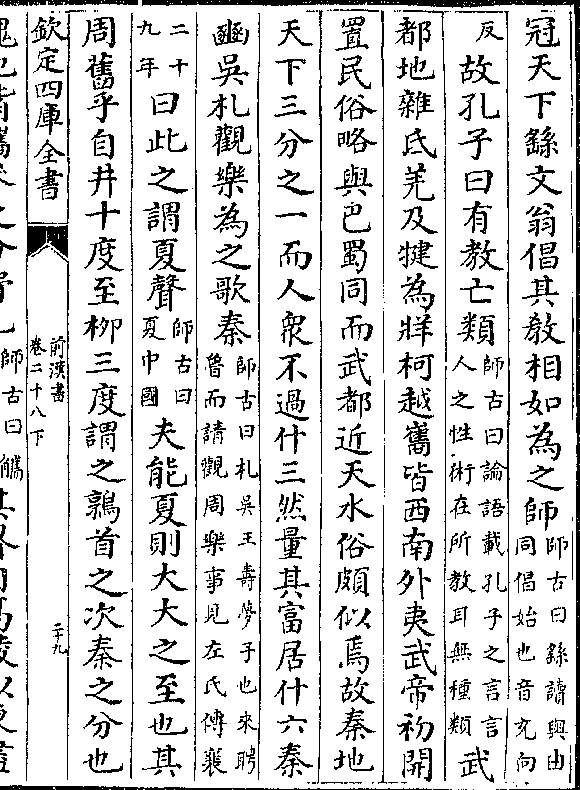 冠天下繇文翁倡其敎相如為之師師古曰繇讀與由同倡始也音充向
反故孔子曰有教亡類師古曰論語載孔子之言言人之性術在所教耳無種類武
都地雜氐羌及犍為牂柯越巂皆西南外夷武帝初開
置民俗略與巴蜀同而武都近天水俗頗似焉故秦地
天下三分之一而人衆不過什三然量其富居什六秦
豳吳札觀樂為之歌秦師古曰札吳王壽夢子也來聘魯而請觀周樂事見左氏傳襄
二十九年曰此之謂夏聲師古曰夏中國夫能夏則大大之至也其
周舊乎自井十度至柳三度謂之鶉首之次秦之分也
欽定四庫全書
前漢書
卷二十八下
二十九